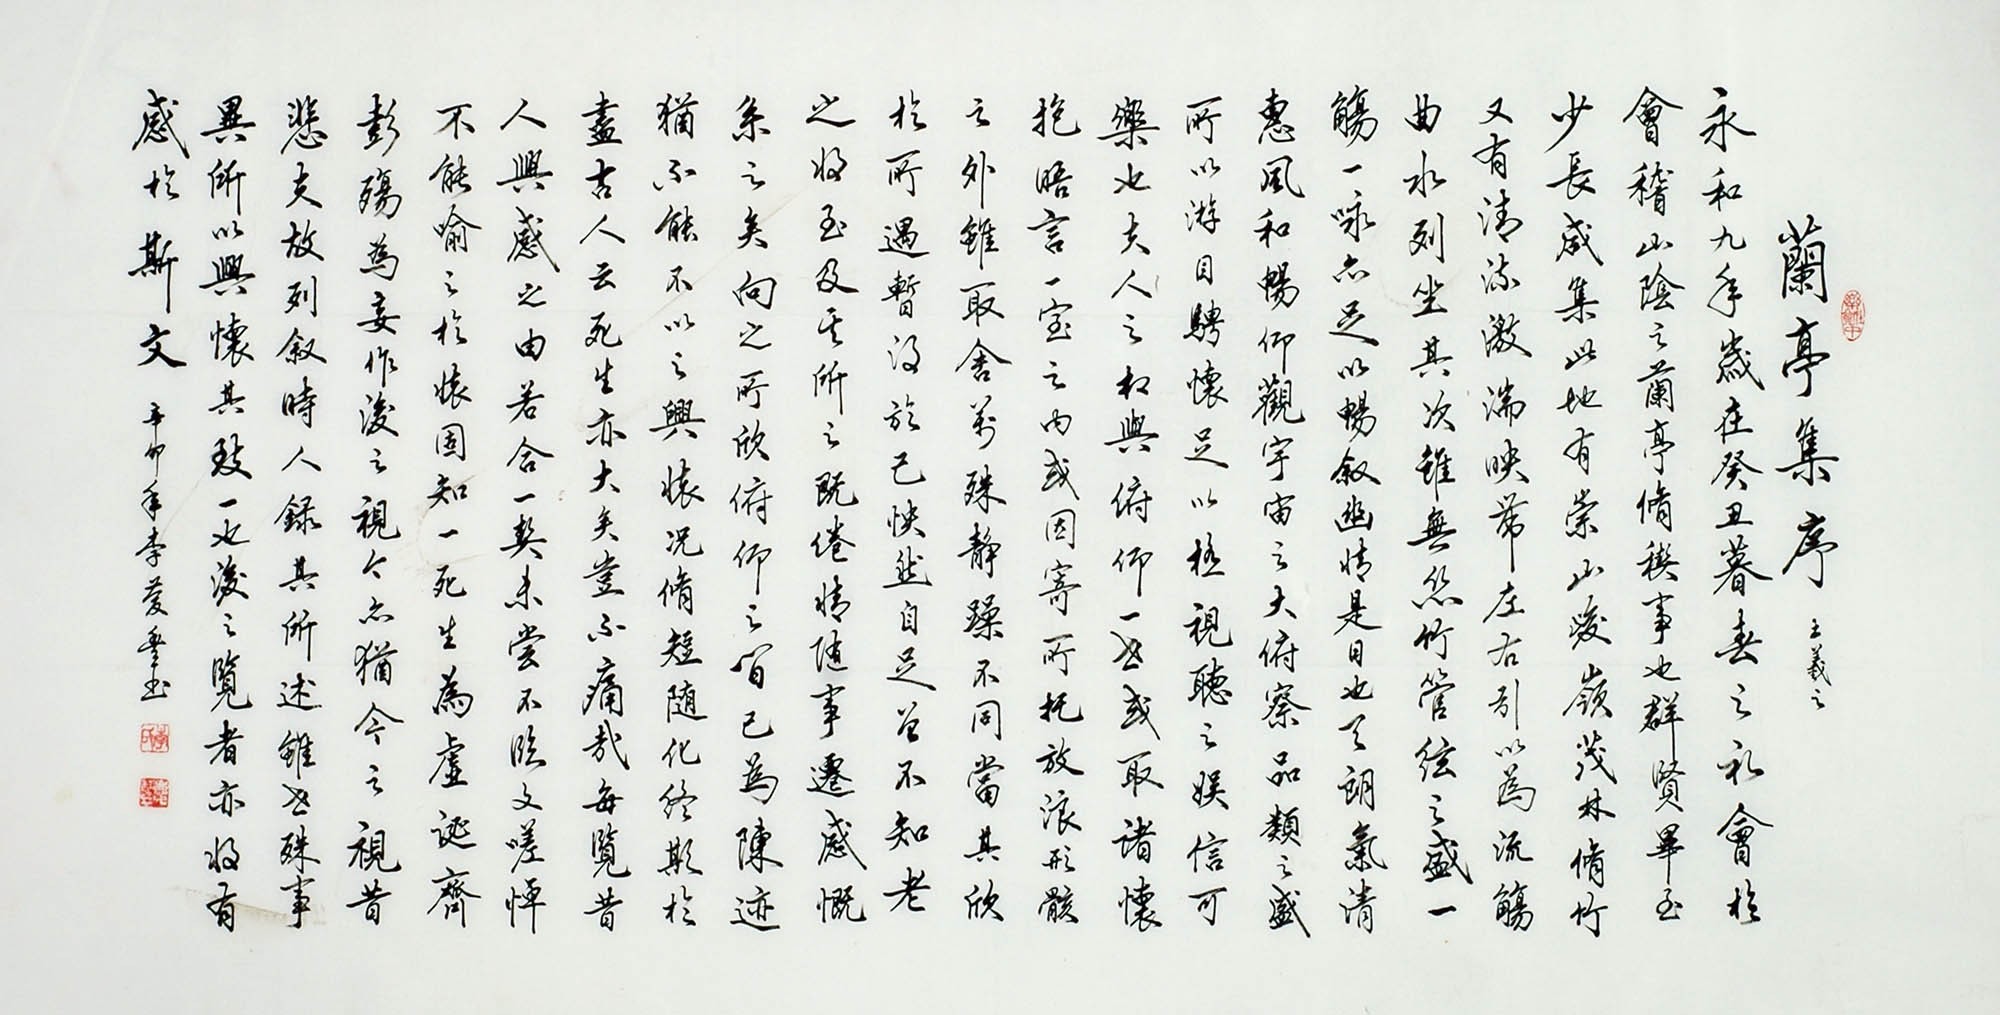 蘭亭集序 王羲之
永和九年歲在癸丑暮春之初會於
會稽山陰之蘭亭脩稧事也群賢畢至
少長咸集此地有崇山峻嶺茂林脩竹
又有清流激湍映帶左右引以為流觴
曲水列坐其次雖無絲竹管絃之盛一
觴一咏亦足以暢敘幽情是日也天朗氣清
惠風和暢仰觀宇宙之大俯察品類之盛
所以游目騁懷足以極視聽之娛信可
樂也夫人之相與俯仰一世或取諸懷
抱晤言一室之內或因寄所托放浪形骸
之外雖取舍萬殊靜躁不同當其欣
於所遇暫得於己怏然自足曾不知老
之將至及其所之既倦情随事遷感慨
系之矣向之所欣俯仰之間已為陳迹
猶不能不以之興懷況脩短随化終期於
盡古人云死生亦大矣豈不痛哉每覽昔
人興感之由若合一契未嘗不臨文嗟悼
不能喻之於懷固知一死生為虛誕齊
彭殤為妄作後之視今亦猶今之視昔
悲夫故列敘時人録其所述雖世殊事
異所以興懷其致一也後之覽者亦將有
感於斯文 辛卯年李